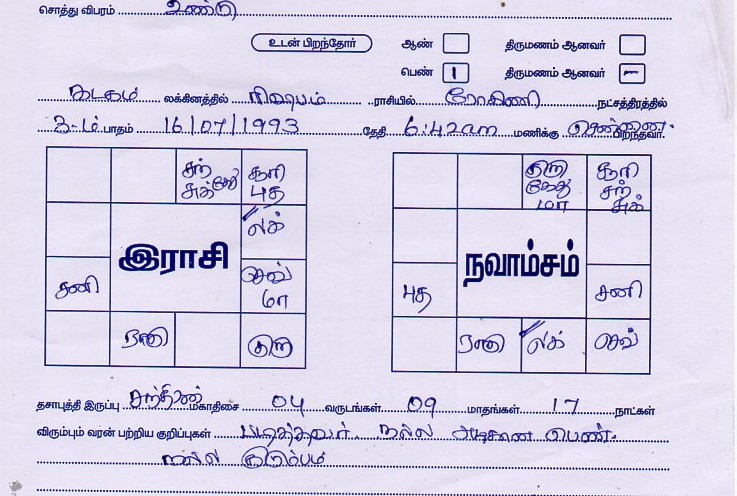 சொத்து விபரம் உண்டு
உடன் பிறந்தோர் ஆண் திருமணம் ஆனவர்
பெண் 1 திருமணம் ஆனவர் –
கடகம் லக்கினத்தில் ரிஷபம் ராசியில் ரோகிணி நட்சத்திரத்தில்
3-ம் பாதம் 16/07/1993 தேதி 6:42am மணிக்கு சென்னை பிறந்தவர்.
சந் கேது சுக்
சூரி புத
லக்
செவ் மா
சனி
ராகு
குரு
இராசி
குரு கேது மா
சூரி சந் சுக்
புத
சனி
ராகு
லக்
செவ்
நவாம்சம்
தசாபுத்தி இருப்பு சந்திரன் மகாதிசை 04 வருடங்கள் 09 மாதங்கள் 17 நாட்கள்
விரும்பும் வரன் பற்றிய குறிப்புகள் படித்தவர். நல்ல பெண்.
நல்ல குடும்பம்